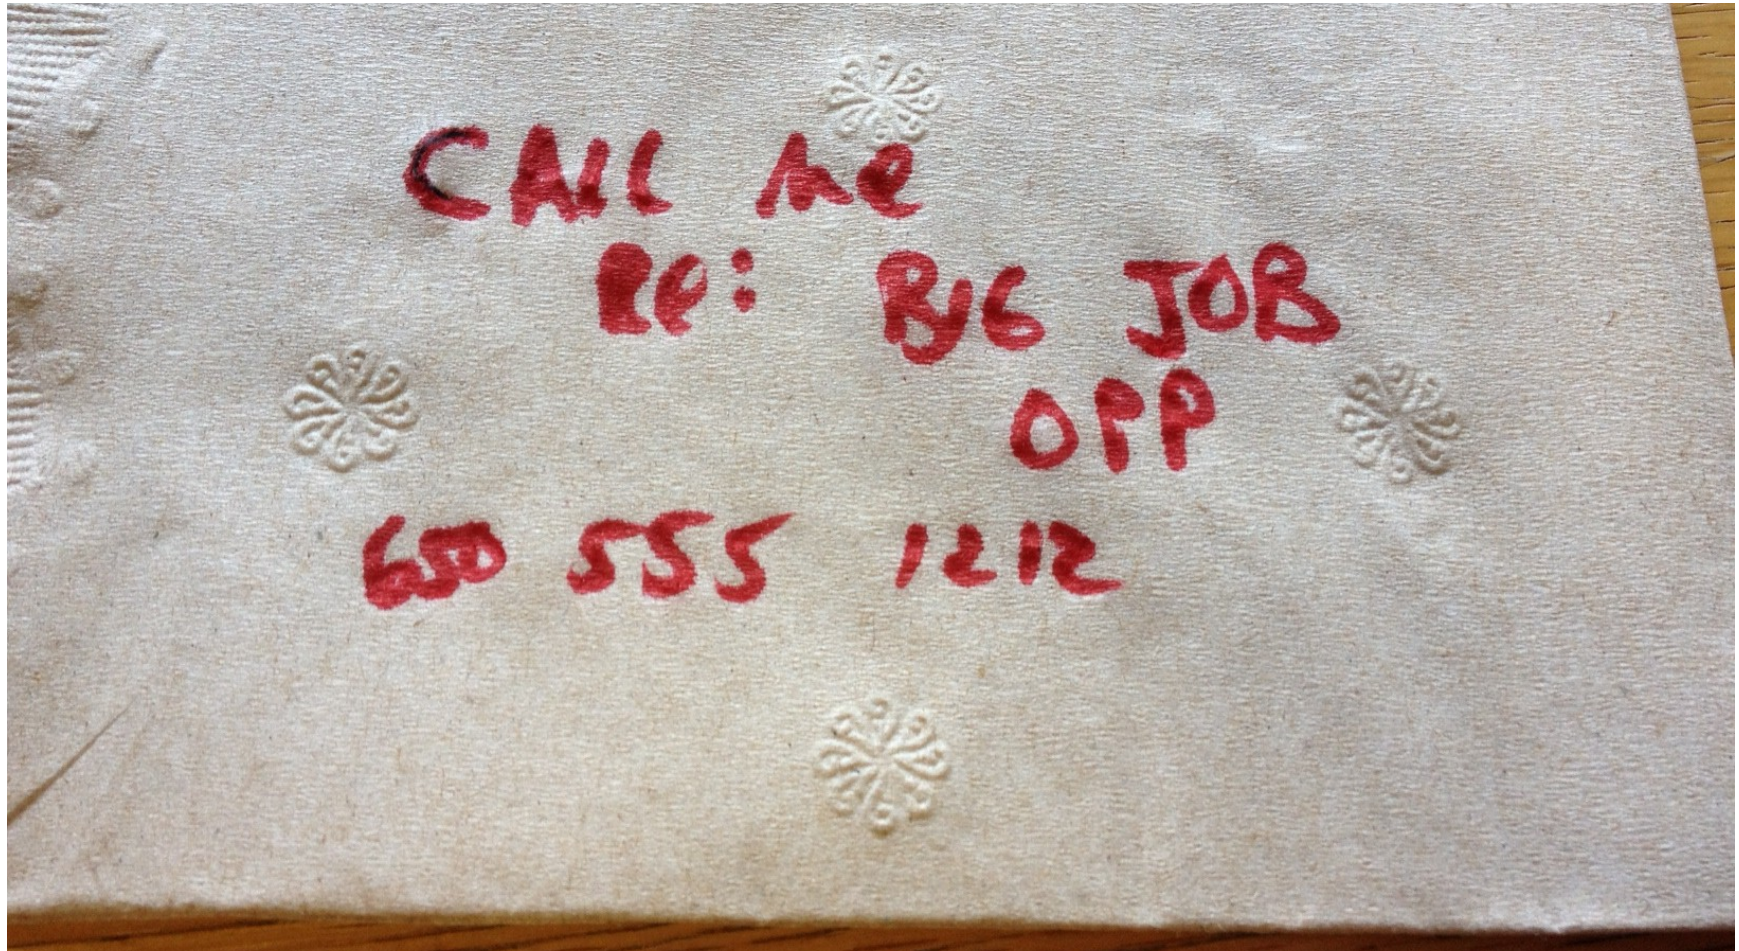 CALL me
Re: BIG JOB
OPP
650 555 1212